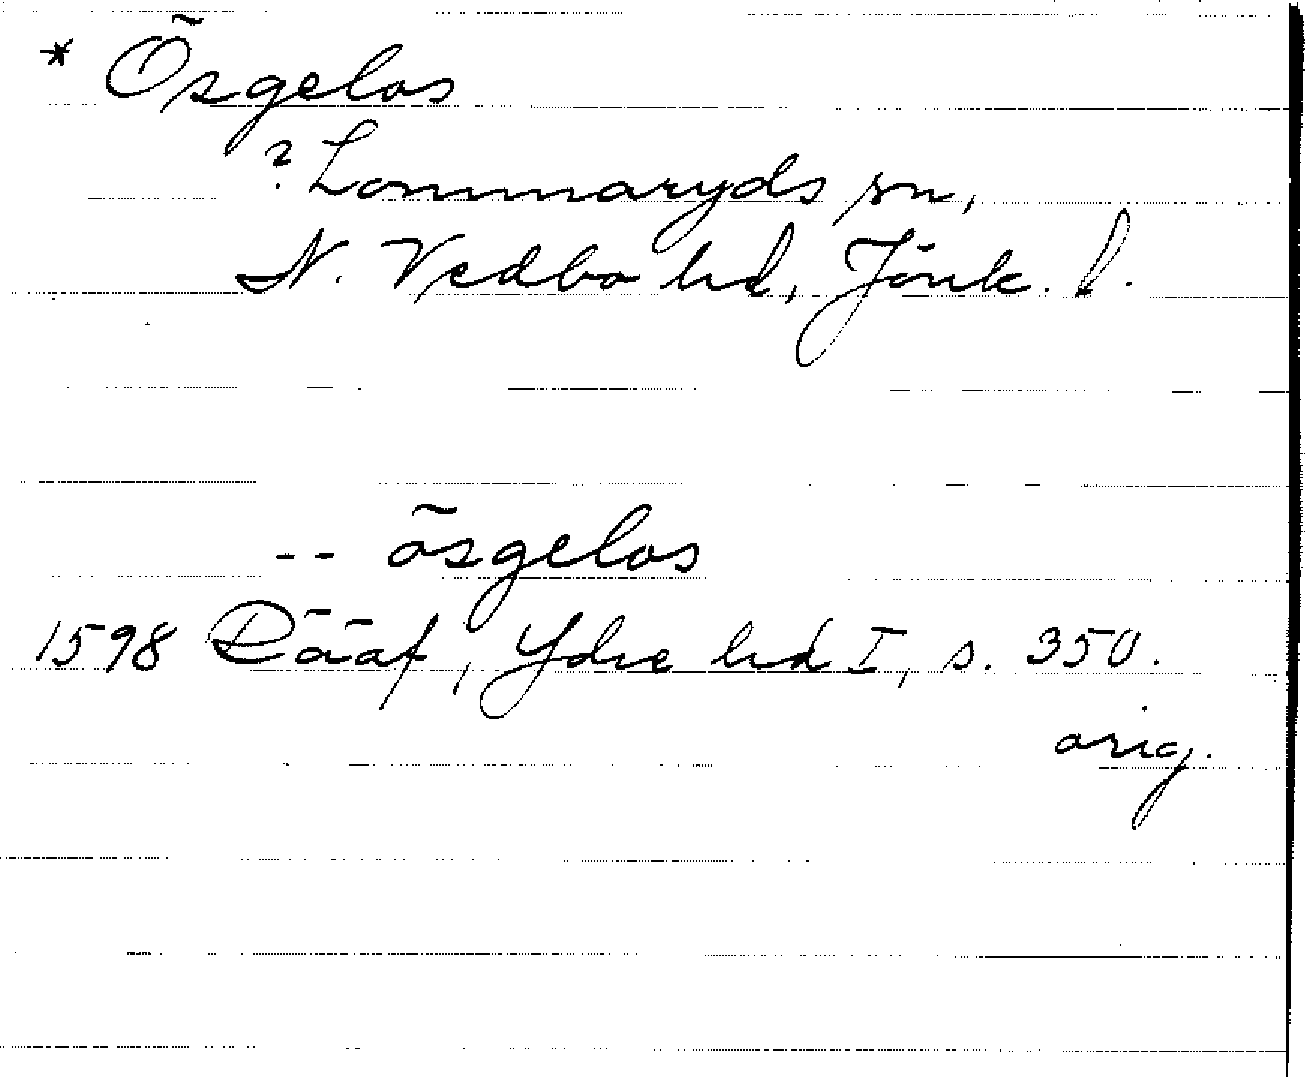 * Õsgelos
? Lommaryds sn,
N. Vedbo hd, Jönk. l.
-- õsgelos
1598 Rääf, Ydre hd I, s. 350.
orig.